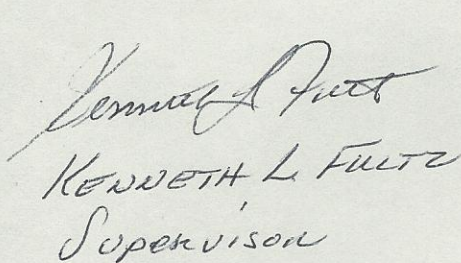 Kenneth L Fultz
KENNETH L. FULTZ
Supervisor